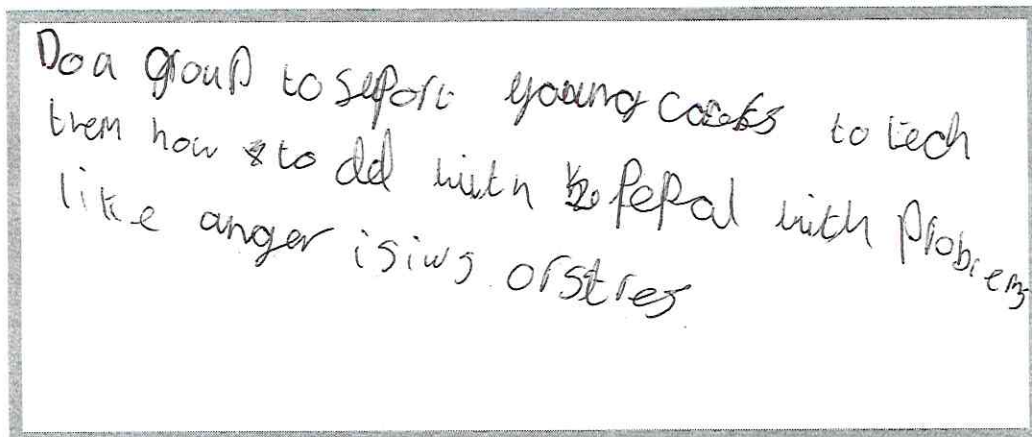 Do a group to seport young to tech
them how to del with pepal with problems
like anger isiws or stres